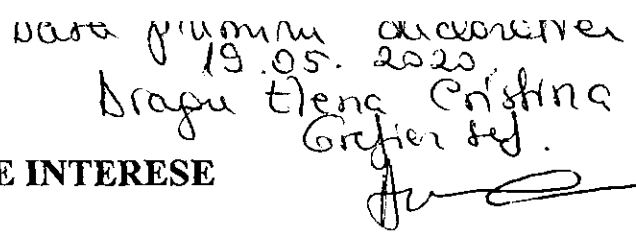 Data primirii declarației
19.05.2020
Dragu Elena Cristina
Grefier șef.
E INTERESE